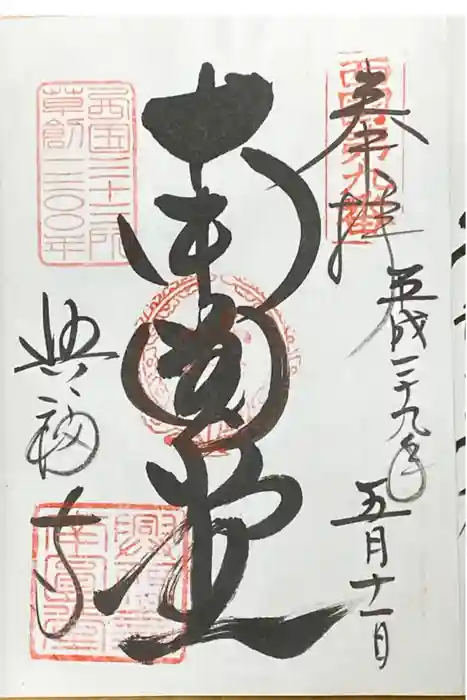 西国第九番
奉拝
平成二十九年
五月十一日
南圓堂
西国三十三所
草創一三〇〇年
興福寺
興福寺
南圓堂